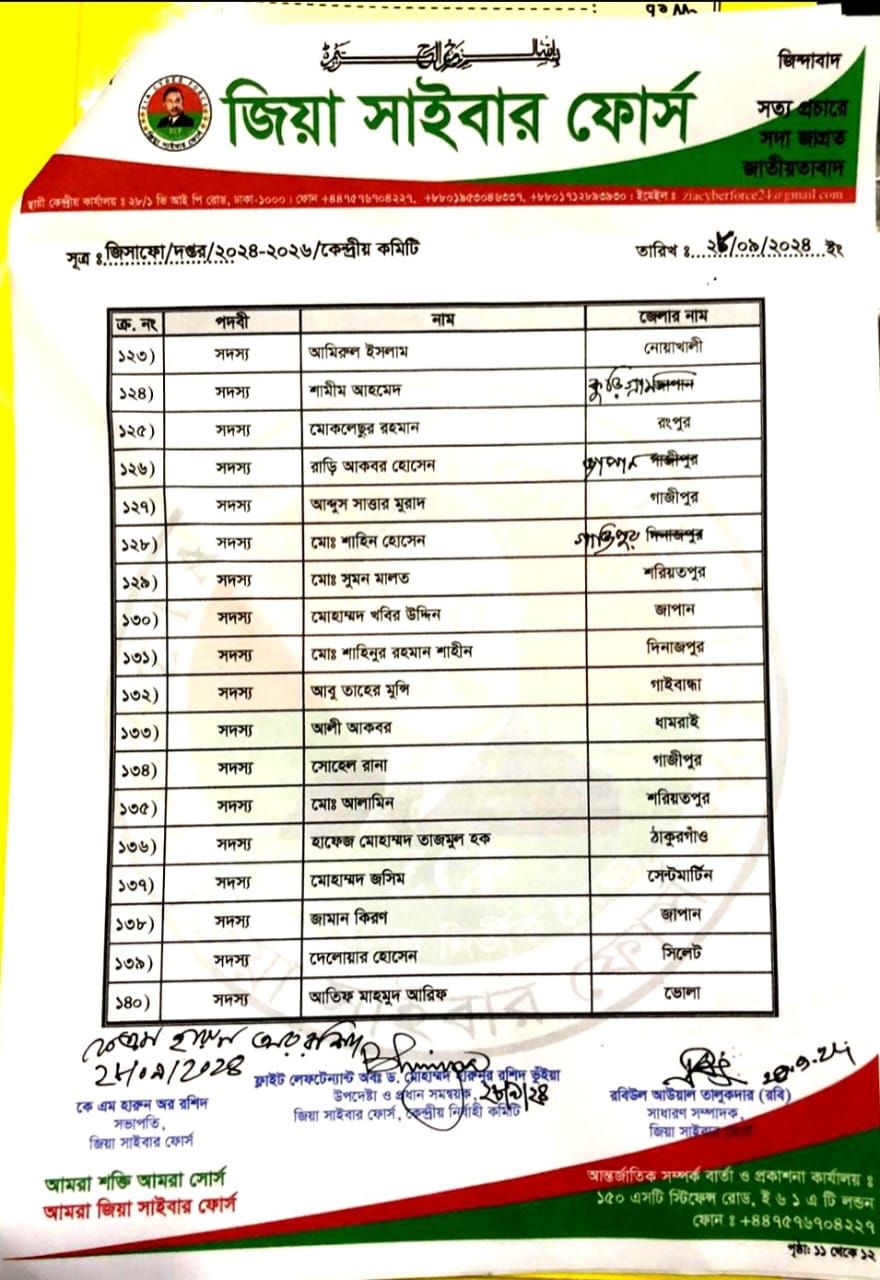 জিন্দাবাদ
জিয়া সাইবার ফোর্স
সত্য প্রচারে
সদা জাগ্রত
জাতীয়তাবাদ
স্থায়ী কেন্দ্রীয় কার্যালয় ঃ ২৮/১ ভি আই পি রোড, ঢাকা-১০০০। ফোন +৪৪৭৫৭৬৭০৪২২৭, +৮৮০১৯৫৩০৪৬৩৩৭, +৮৮০১৭১২৮৯৩৯৩০। ইমেইল ঃ ziacyberforce24@gmail.com
সূত্র ঃ জিসাফো/দপ্তর/২০২৪-২০২৬/কেন্দ্রীয় কমিটি
তারিখ ঃ ২৮/০৯/২০২৪ ইং
ক্র. নং পদবী নাম জেলার নাম
১২৩) সদস্য আমিরুল ইসলাম নোয়াখালী
১২৪) সদস্য শামীম আহমেদ কুড়িগ্রাম জাপান
১২৫) সদস্য মোকলেছুর রহমান রংপুর
১২৬) সদস্য রাড়ি আকবর হোসেন জাপান গাজীপুর
১২৭) সদস্য আব্দুস সাত্তার মুরাদ গাজীপুর
১২৮) সদস্য মোঃ শাহিন হোসেন গাজিপুর দিনাজপুর
১২৯) সদস্য মোঃ সুমন মালত শরিয়তপুর
১৩০) সদস্য মোহাম্মদ খবির উদ্দিন জাপান
১৩১) সদস্য মোঃ শাহিনুর রহমান শাহীন দিনাজপুর
১৩২) সদস্য আবু তাহের মুন্সি গাইবান্ধা
১৩৩) সদস্য আলী আকবর ধামরাই
১৩৪) সদস্য সোহেল রানা গাজীপুর
১৩৫) সদস্য মোঃ আলামিন শরিয়তপুর
১৩৬) সদস্য হাফেজ মোহাম্মদ তাজমুল হক ঠাকুরগাঁও
১৩৭) সদস্য মোহাম্মদ জসিম সেন্টমার্টিন
১৩৮) সদস্য জামান কিরণ জাপান
১৩৯) সদস্য দেলোয়ার হোসেন সিলেট
১৪০) সদস্য আতিফ মাহমুদ আরিফ ভোলা
২৮/০৯/২০২৪
কে এম হারুন অর রশিদ
সভাপতি,
জিয়া সাইবার ফোর্স
ফ্লাইট লেফটেন্যান্ট অবঃ ড. মোহাম্মদ হারুনুর রশিদ ভূঁইয়া
উপদেষ্টা ও প্রধান সমন্বয়ক, ২৮/৯/২৪
জিয়া সাইবার ফোর্স, কেন্দ্রীয় নির্বাহী কমিটি
রবিউল আউয়াল তালুকদার (রবি)
সাধারণ সম্পাদক,
জিয়া সাইবার ফোর্স
আমরা শক্তি আমরা সোর্স
আমরা জিয়া সাইবার ফোর্স
আন্তর্জাতিক সম্পর্ক বার্তা ও প্রকাশনা কার্যালয় ঃ
১৫০ এসটি স্টিফেন্স রোড, ই ৬ ১ এ টি লন্ডন
ফোন ঃ +৪৪৭৫৭৬৭০৪২২৭
পৃষ্ঠা: ১১ থেকে ১২